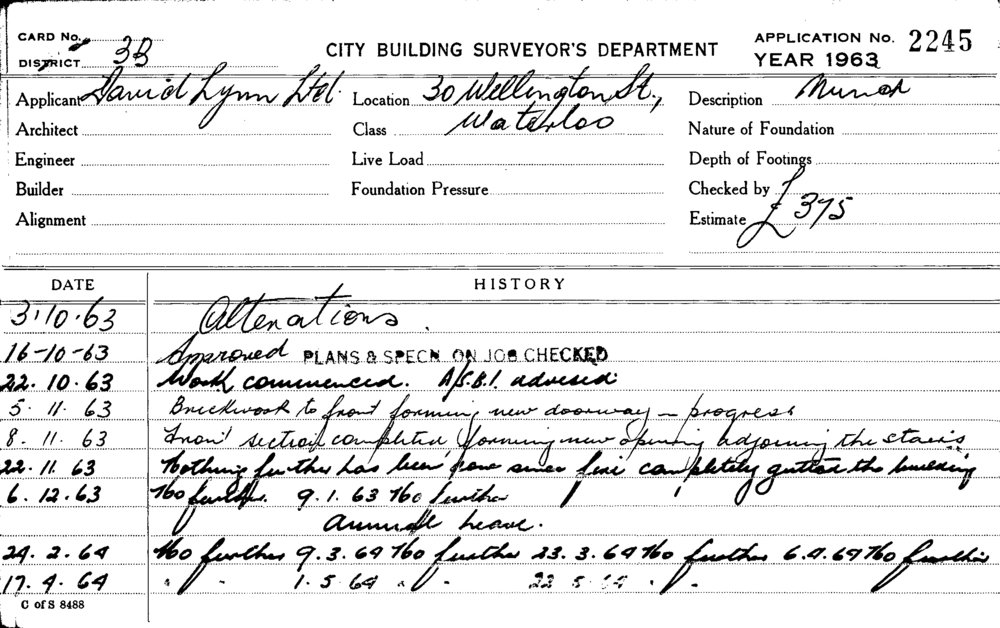 CARD No.
DISTRICT 3B
CITY BUILDING SURVEYOR'S DEPARTMENT
APPLICATION No. 2245
YEAR 1963
Applicant David Lynn Ltd. Location 30 Wellington St., Description Minor
Architect Class Waterloo Nature of Foundation
Engineer Live Load Depth of Footings
Builder Foundation Pressure Checked by
Alignment Estimate £375
DATE HISTORY
3.10.63 Alterations.
16-10-63 Approved PLANS & SPECN. ON JOB CHECKED
22.10.63 Work commenced. A/S.B.I. advised
5.11.63 Brickwork to front forming new doorway in progress
8.11.63 Front section completed, forming new opening adjoining the stairs
22.11.63 Nothing further has been done since fire completely gutted the building
6.12.63 No further. 9.1.63 No further
Annual Leave.
24.2.64 No further 9.3.64 No further 23.3.64 No further 6.4.64 No further
17.4.64 " " 1.5.64 " " 22.5.64 " "
C of S 8488